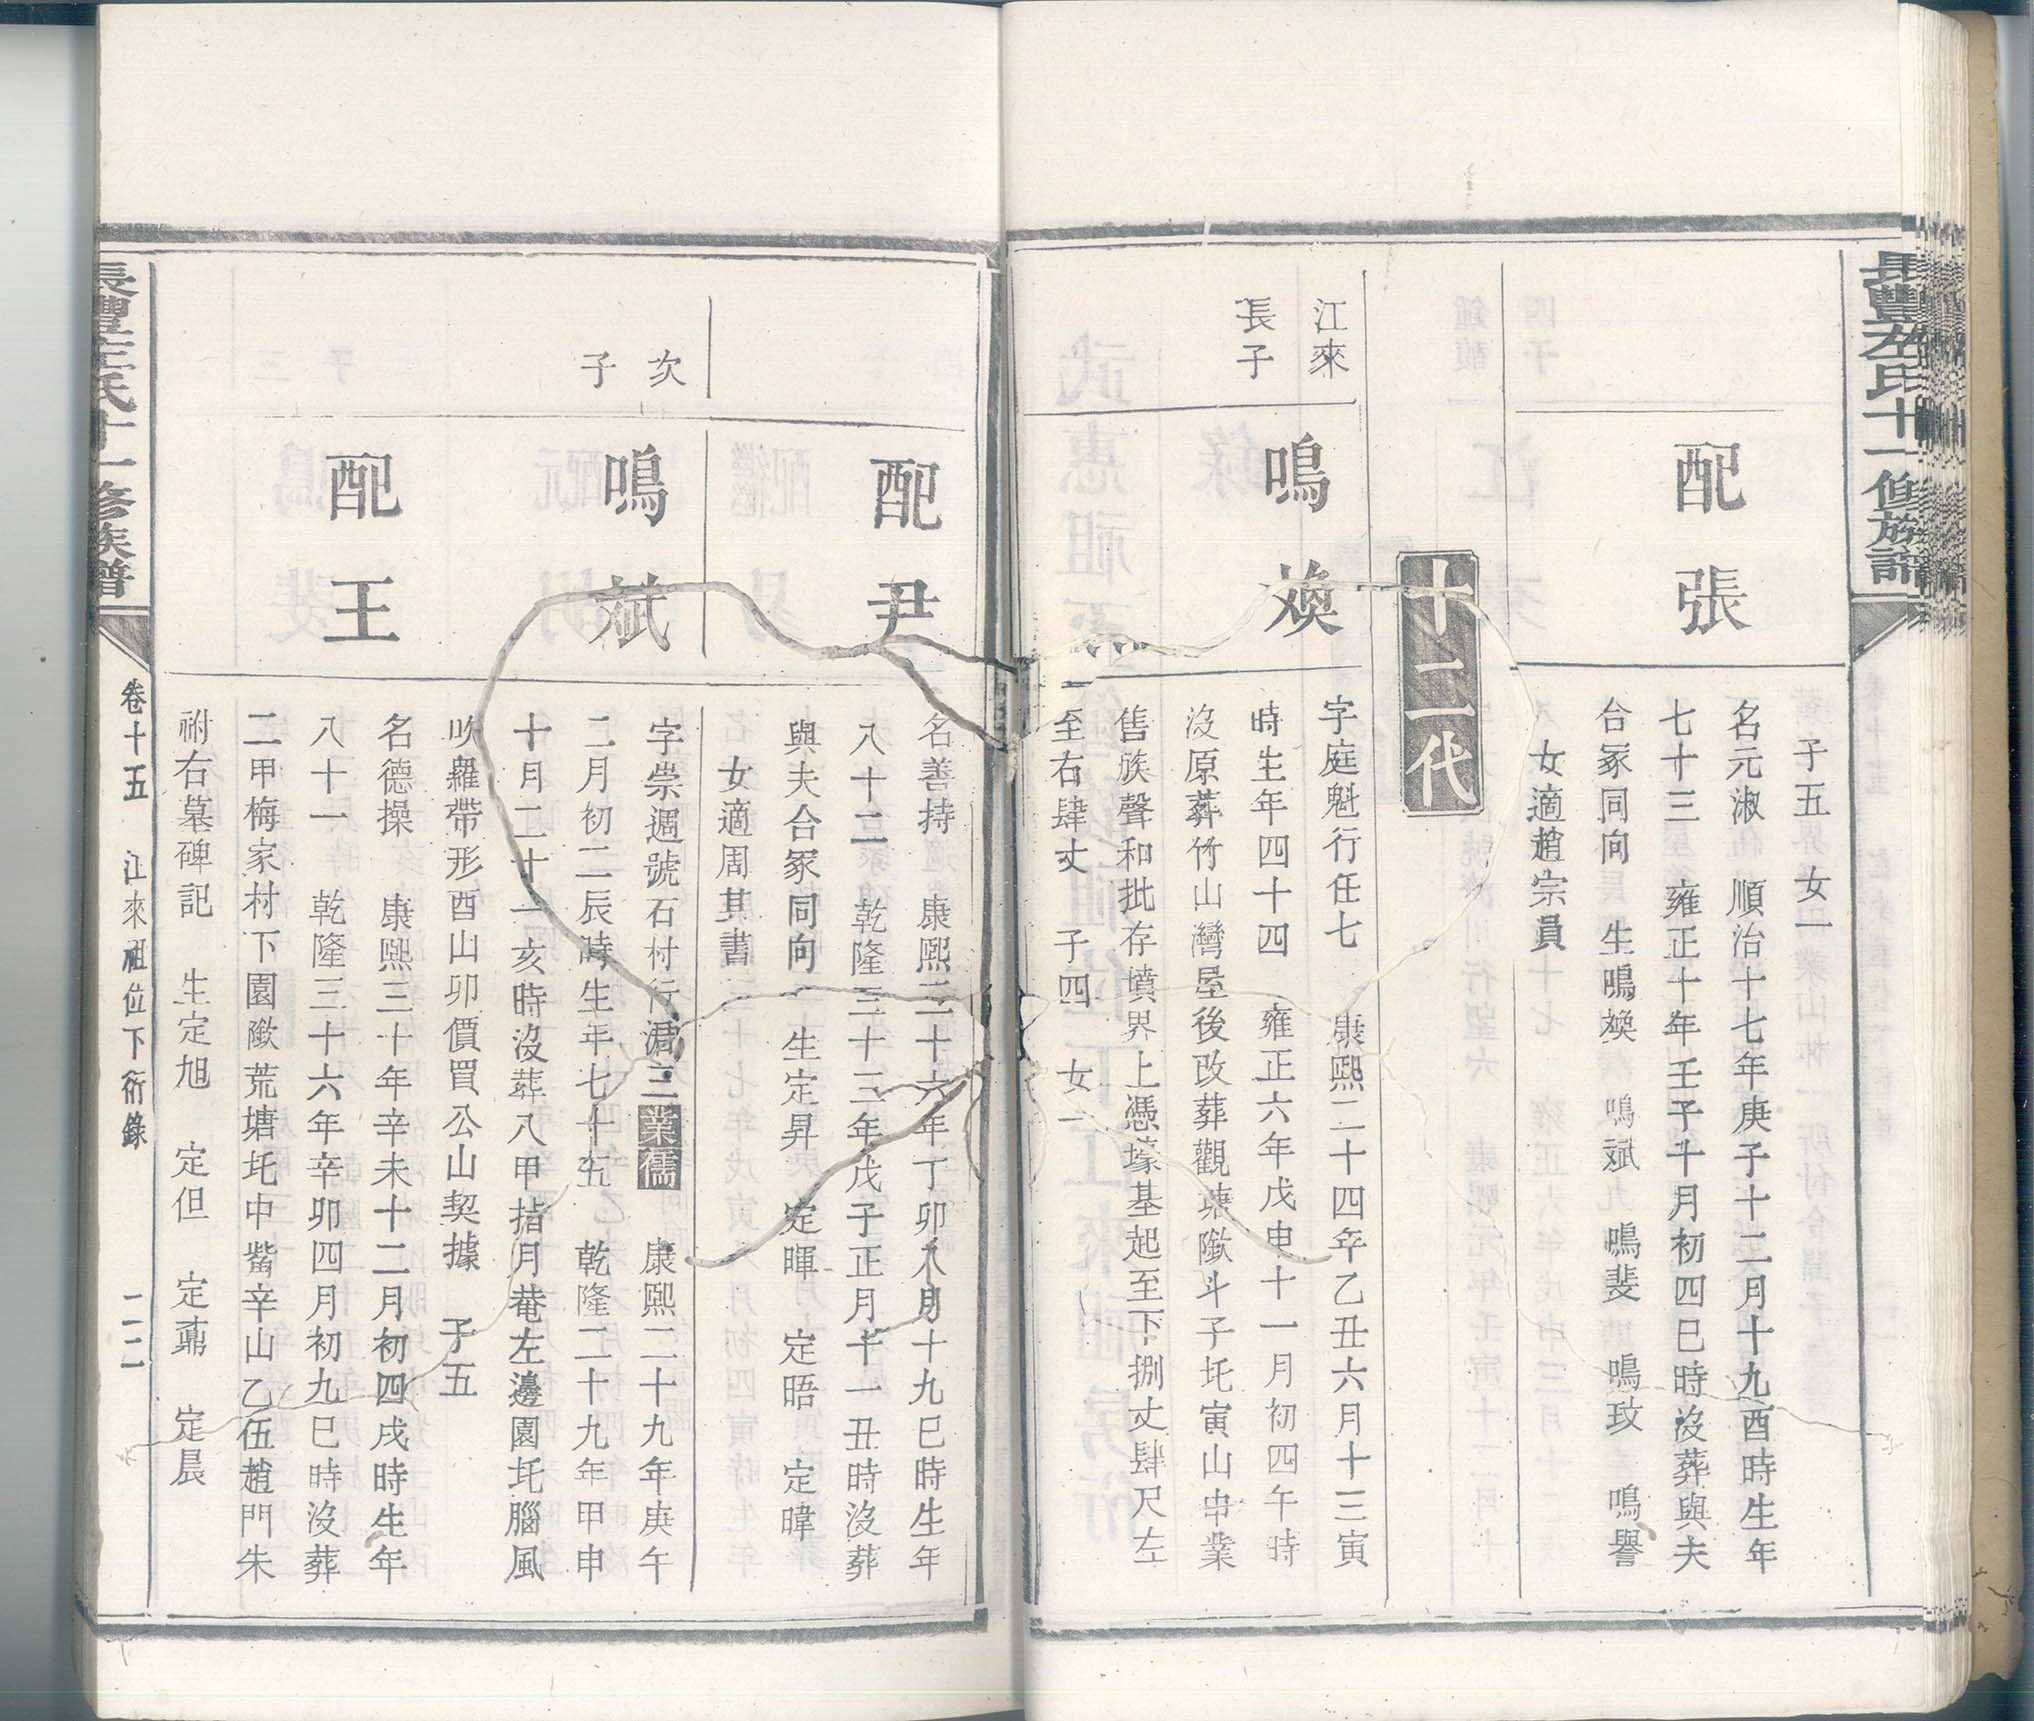 子五 女一
配張
名元淑 順治十七年庚子十二月十九酉時生年
七十三 雍正十年壬子十月初四巳時沒葬與夫
合冢同向 生鳴煥 鳴斌 鳴斐 鳴玟 鳴譽
女適趙宗員
十二代
江來
長子
鳴煥
字庭魁行任七 康熙二十四年乙丑六月十三寅
時生年四十四 雍正六年戊申十一月初四午時
沒原葬竹山灣屋後改葬觀塘隞斗子圫寅山申業
售族聲和批存墳界上憑壕基起至下捌丈肆尺左
至右肆丈 子四 女一
配尹
名善持 康熙二十六年丁卯八月十九巳時生年
八十二 乾隆三十三年戊子正月十一丑時沒葬
與夫合冢同向 生定昇 定暉 定晤 定暐
女適周其書
次
子
鳴斌
字崇週號石村行涒三業儒 康熙二十九年庚午
二月初二辰時生年七十五 乾隆二十九年甲申
十月二十一亥時沒葬八甲指月菴左邊園圫腦風
吹羅帶形酉山卯價買公山契據 子五
配王
名德操 康熙三十年辛未十二月初四戌時生年
八十一 乾隆三十六年辛卯四月初九巳時沒葬
二甲梅家村下園隞荒塘圫中嘴辛山乙伍趙門朱
祔右墓碑記 生定旭 定但 定鼐 定晨
卷十五 江來祖位下衍錄 二二